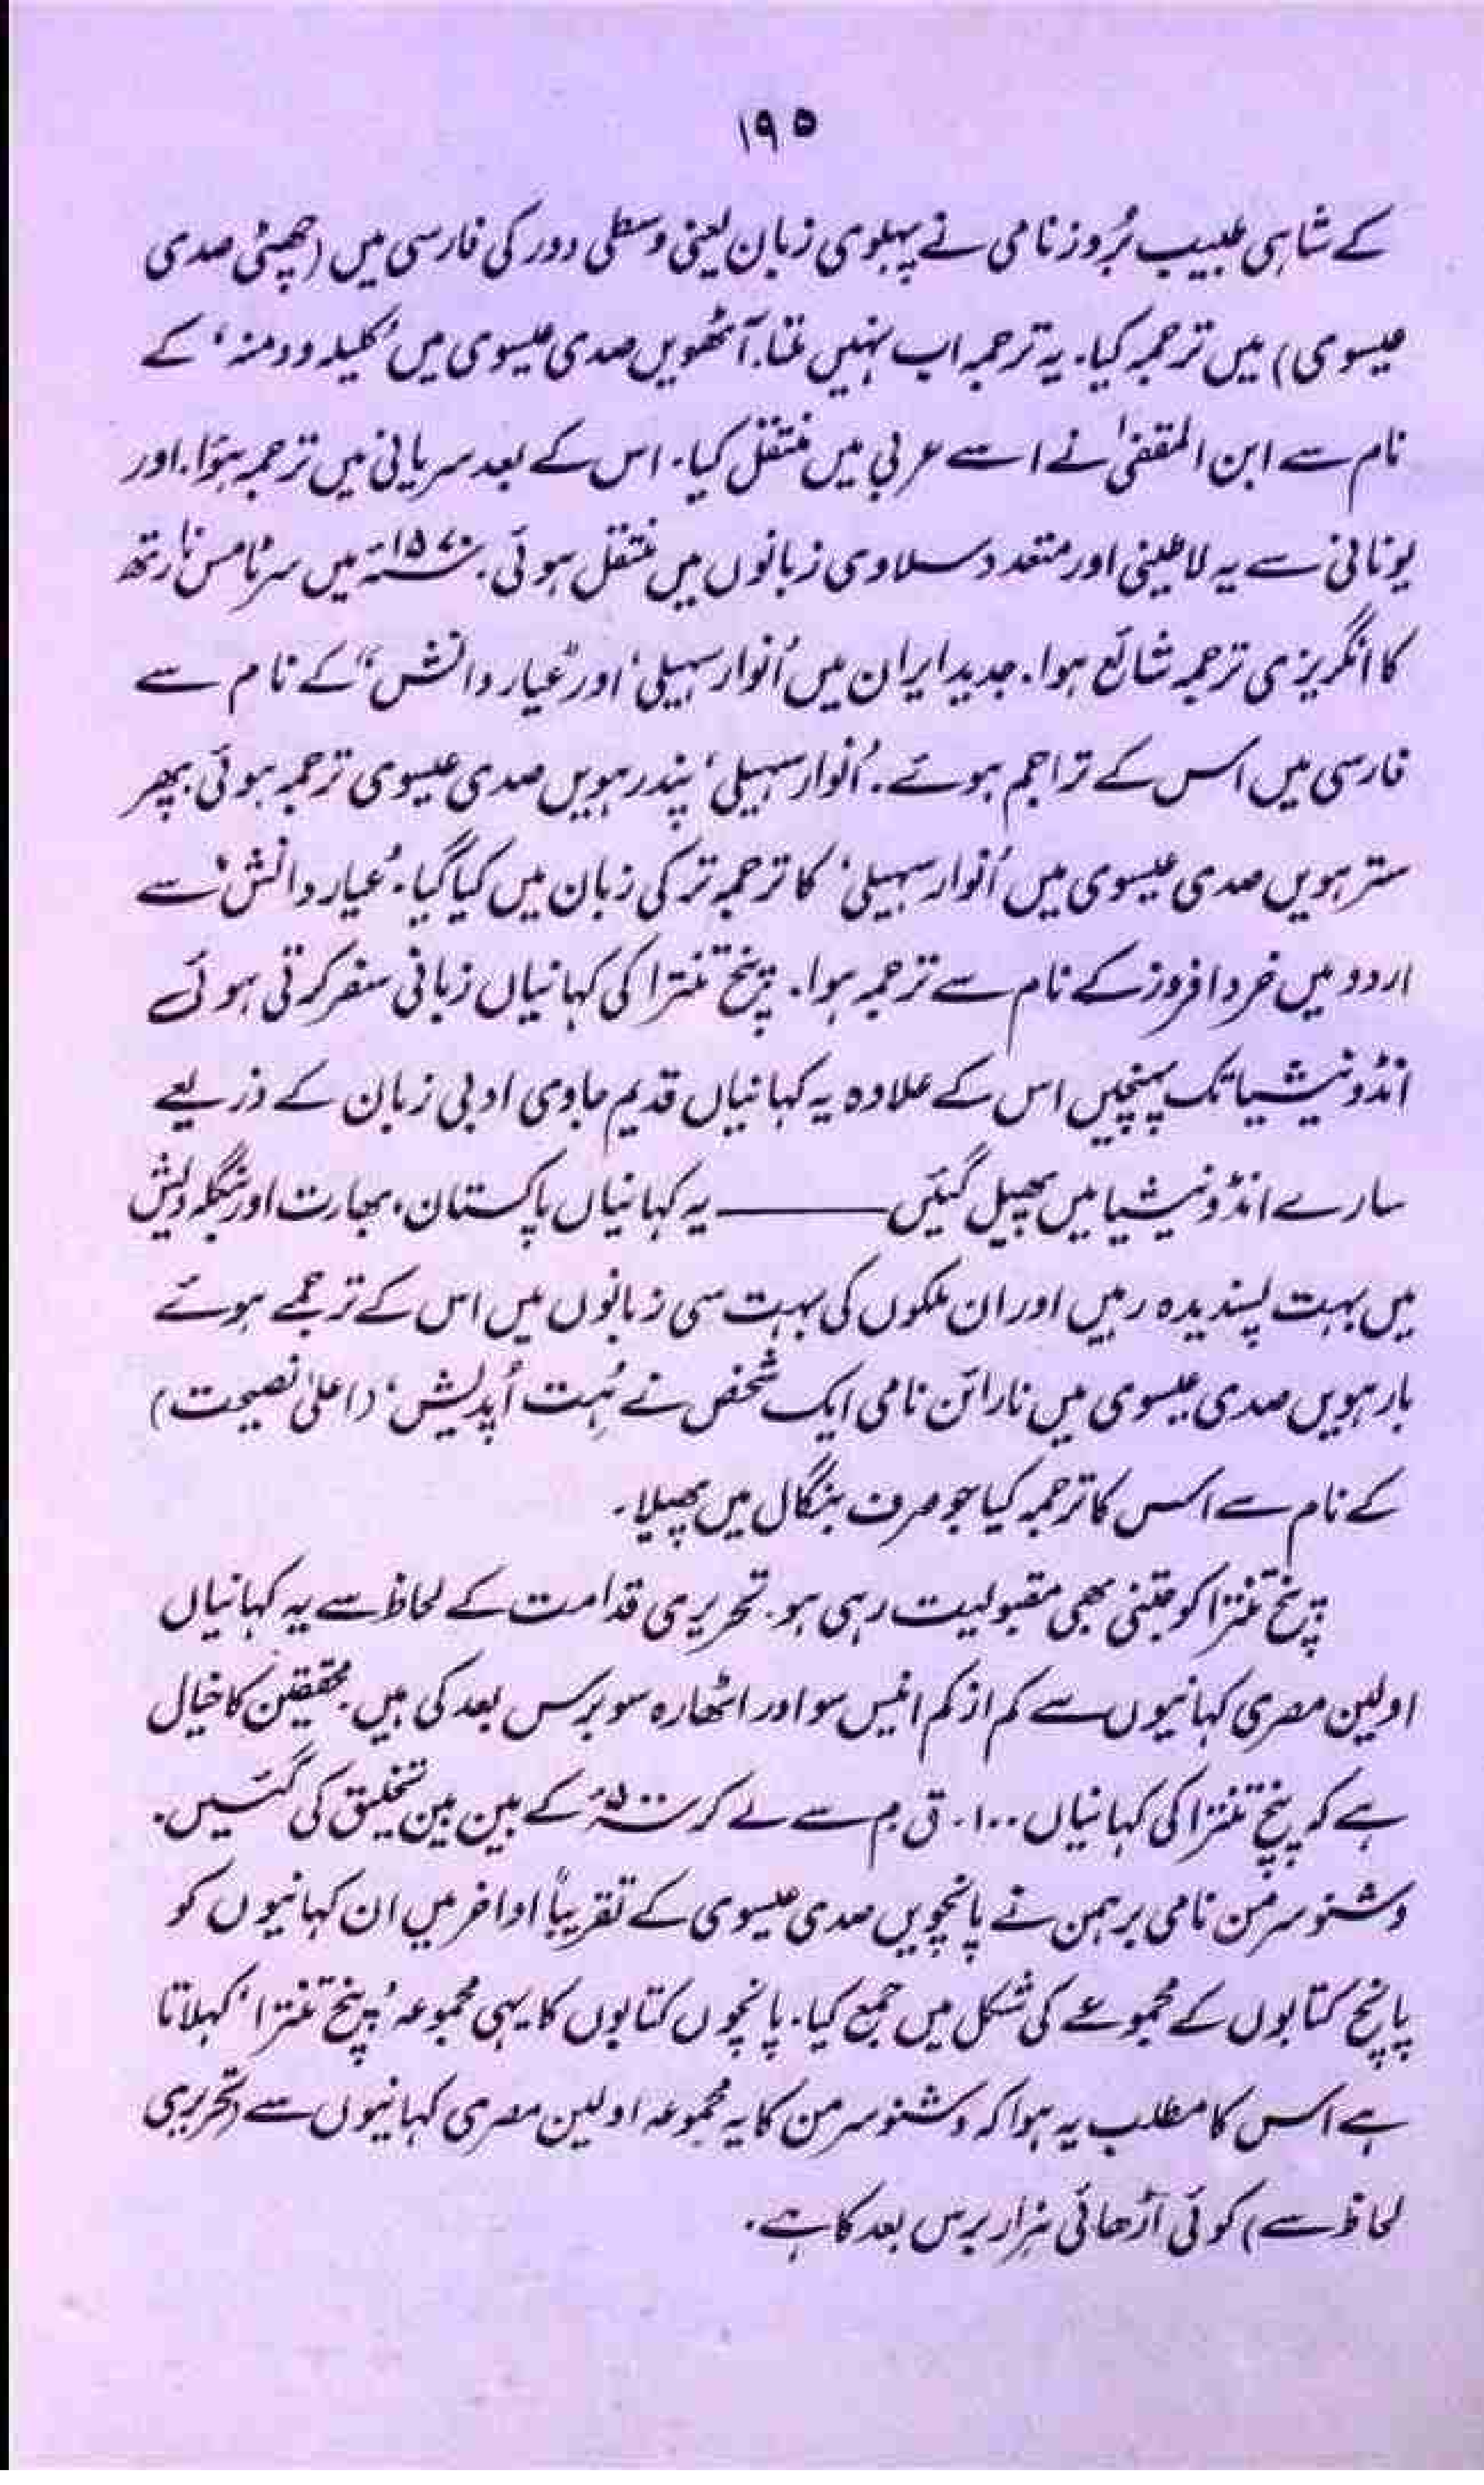 ۱۹۵
کے شاہی طبیب بُروز نامی نے پہلوی زبان یعنی وسطی دور کی فارسی میں (چھٹی صدی
عیسوی) میں ترجمہ کیا۔ یہ ترجمہ اب نہیں ملتا۔ آٹھویں صدی عیسوی میں ’کلیلہ و دمنہ‘ کے
نام سے ابن المقفیٰ نے اسے عربی میں منتقل کیا۔ اس کے بعد سریانی میں ترجمہ ہؤا۔ اور
یونانی سے یہ لاطینی اور متعدد سلاوی زبانوں میں منتقل ہوئی۔ ۱۵۷۰ء میں سر ٹامس نارتھ
کا انگریزی ترجمہ شائع ہوا۔ جدید ایران میں ’انوار سہیلی‘ اور ”عیار دانش“ کے نام سے
فارسی میں اس کے تراجم ہوئے۔ ’انوار سہیلی‘ پندرہویں صدی عیسوی ترجمہ ہوئی پھر
سترہویں صدی عیسوی میں ’انوار سہیلی‘ کا ترجمہ ترکی زبان میں کیا گیا۔ ’عیار دانش‘ سے
اردو میں خرد افروز کے نام سے ترجمہ ہوا۔ پنچ تنترا کی کہانیاں زبانی سفر کرتی ہوئی
انڈونیشیا تک پہنچیں اس کے علاوہ یہ کہانیاں قدیم جاوی ادبی زبان کے ذریعے
سارے انڈونیشیا میں پھیل گئیں ——— یہ کہانیاں پاکستان، بھارت اور بنگلہ دلیش
میں بہت پسندیدہ رہیں اور ان ملکوں کی بہت سی زبانوں میں اس کے ترجمے ہوئے
بارہویں صدی عیسوی میں نارائن نامی ایک شخص نے ’ہِت اُپدیش‘ (اعلیٰ نصیحت)
کے نام سے اس کا ترجمہ کیا جو صرف بنگال میں پھیلا۔
پنچ تنترا کو جتنی بھی مقبولیت رہی ہو۔ تحریری قدامت کے لحاظ سے یہ کہانیاں
اولین مصری کہانیوں سے کم از کم انیس سو اور اٹھارہ سو برس بعد کی ہیں۔ محققین کا خیال
ہے کہ پنچ تنترا کی کہانیاں ۱۰۰ ق م سے لے کر ۵۰۰ء کے بین بین تخلیق کی گئیں۔
وشنو سرمن نامی برہمن نے پانچویں صدی عیسوی کے تقریباً اواخر میں ان کہانیوں کو
پانچ کتابوں کے مجموعے کی شکل میں جمع کیا۔ پانچوں کتابوں کا یہی مجموعہ ’پنچ تنترا‘ کہلاتا
ہے اس کا مطلب یہ ہوا کہ وشنو سرمن کا یہ مجموعہ اولین مصری کہانیوں سے (تحریری
لحاظ سے) کوئی آڑھائی ہزار برس بعد کا ہے۔